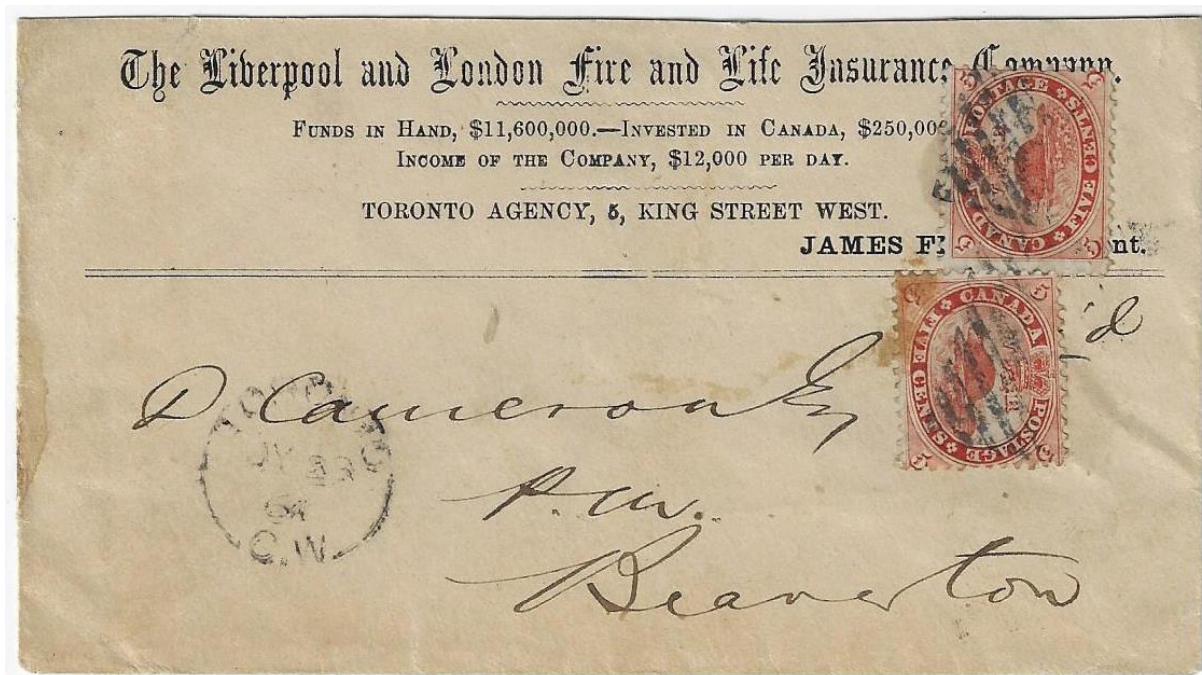 The Liverpool and London Fire and Life Insurance Company.
FUNDS IN HAND, $11,600,000.—INVESTED IN CANADA, $250,00
INCOME OF THE COMPANY, $12,000 PER DAY.
TORONTO AGENCY, 5, KING STREET WEST.
JAMES F nt.
CANADA POSTAGE FIVE CENTS
5 5 5 5
CANADA POSTAGE FIVE CENTS
5 5 5 5
'd
D Cameron Esq
P.M.
Beaverton
TORONTO
64
C.W.